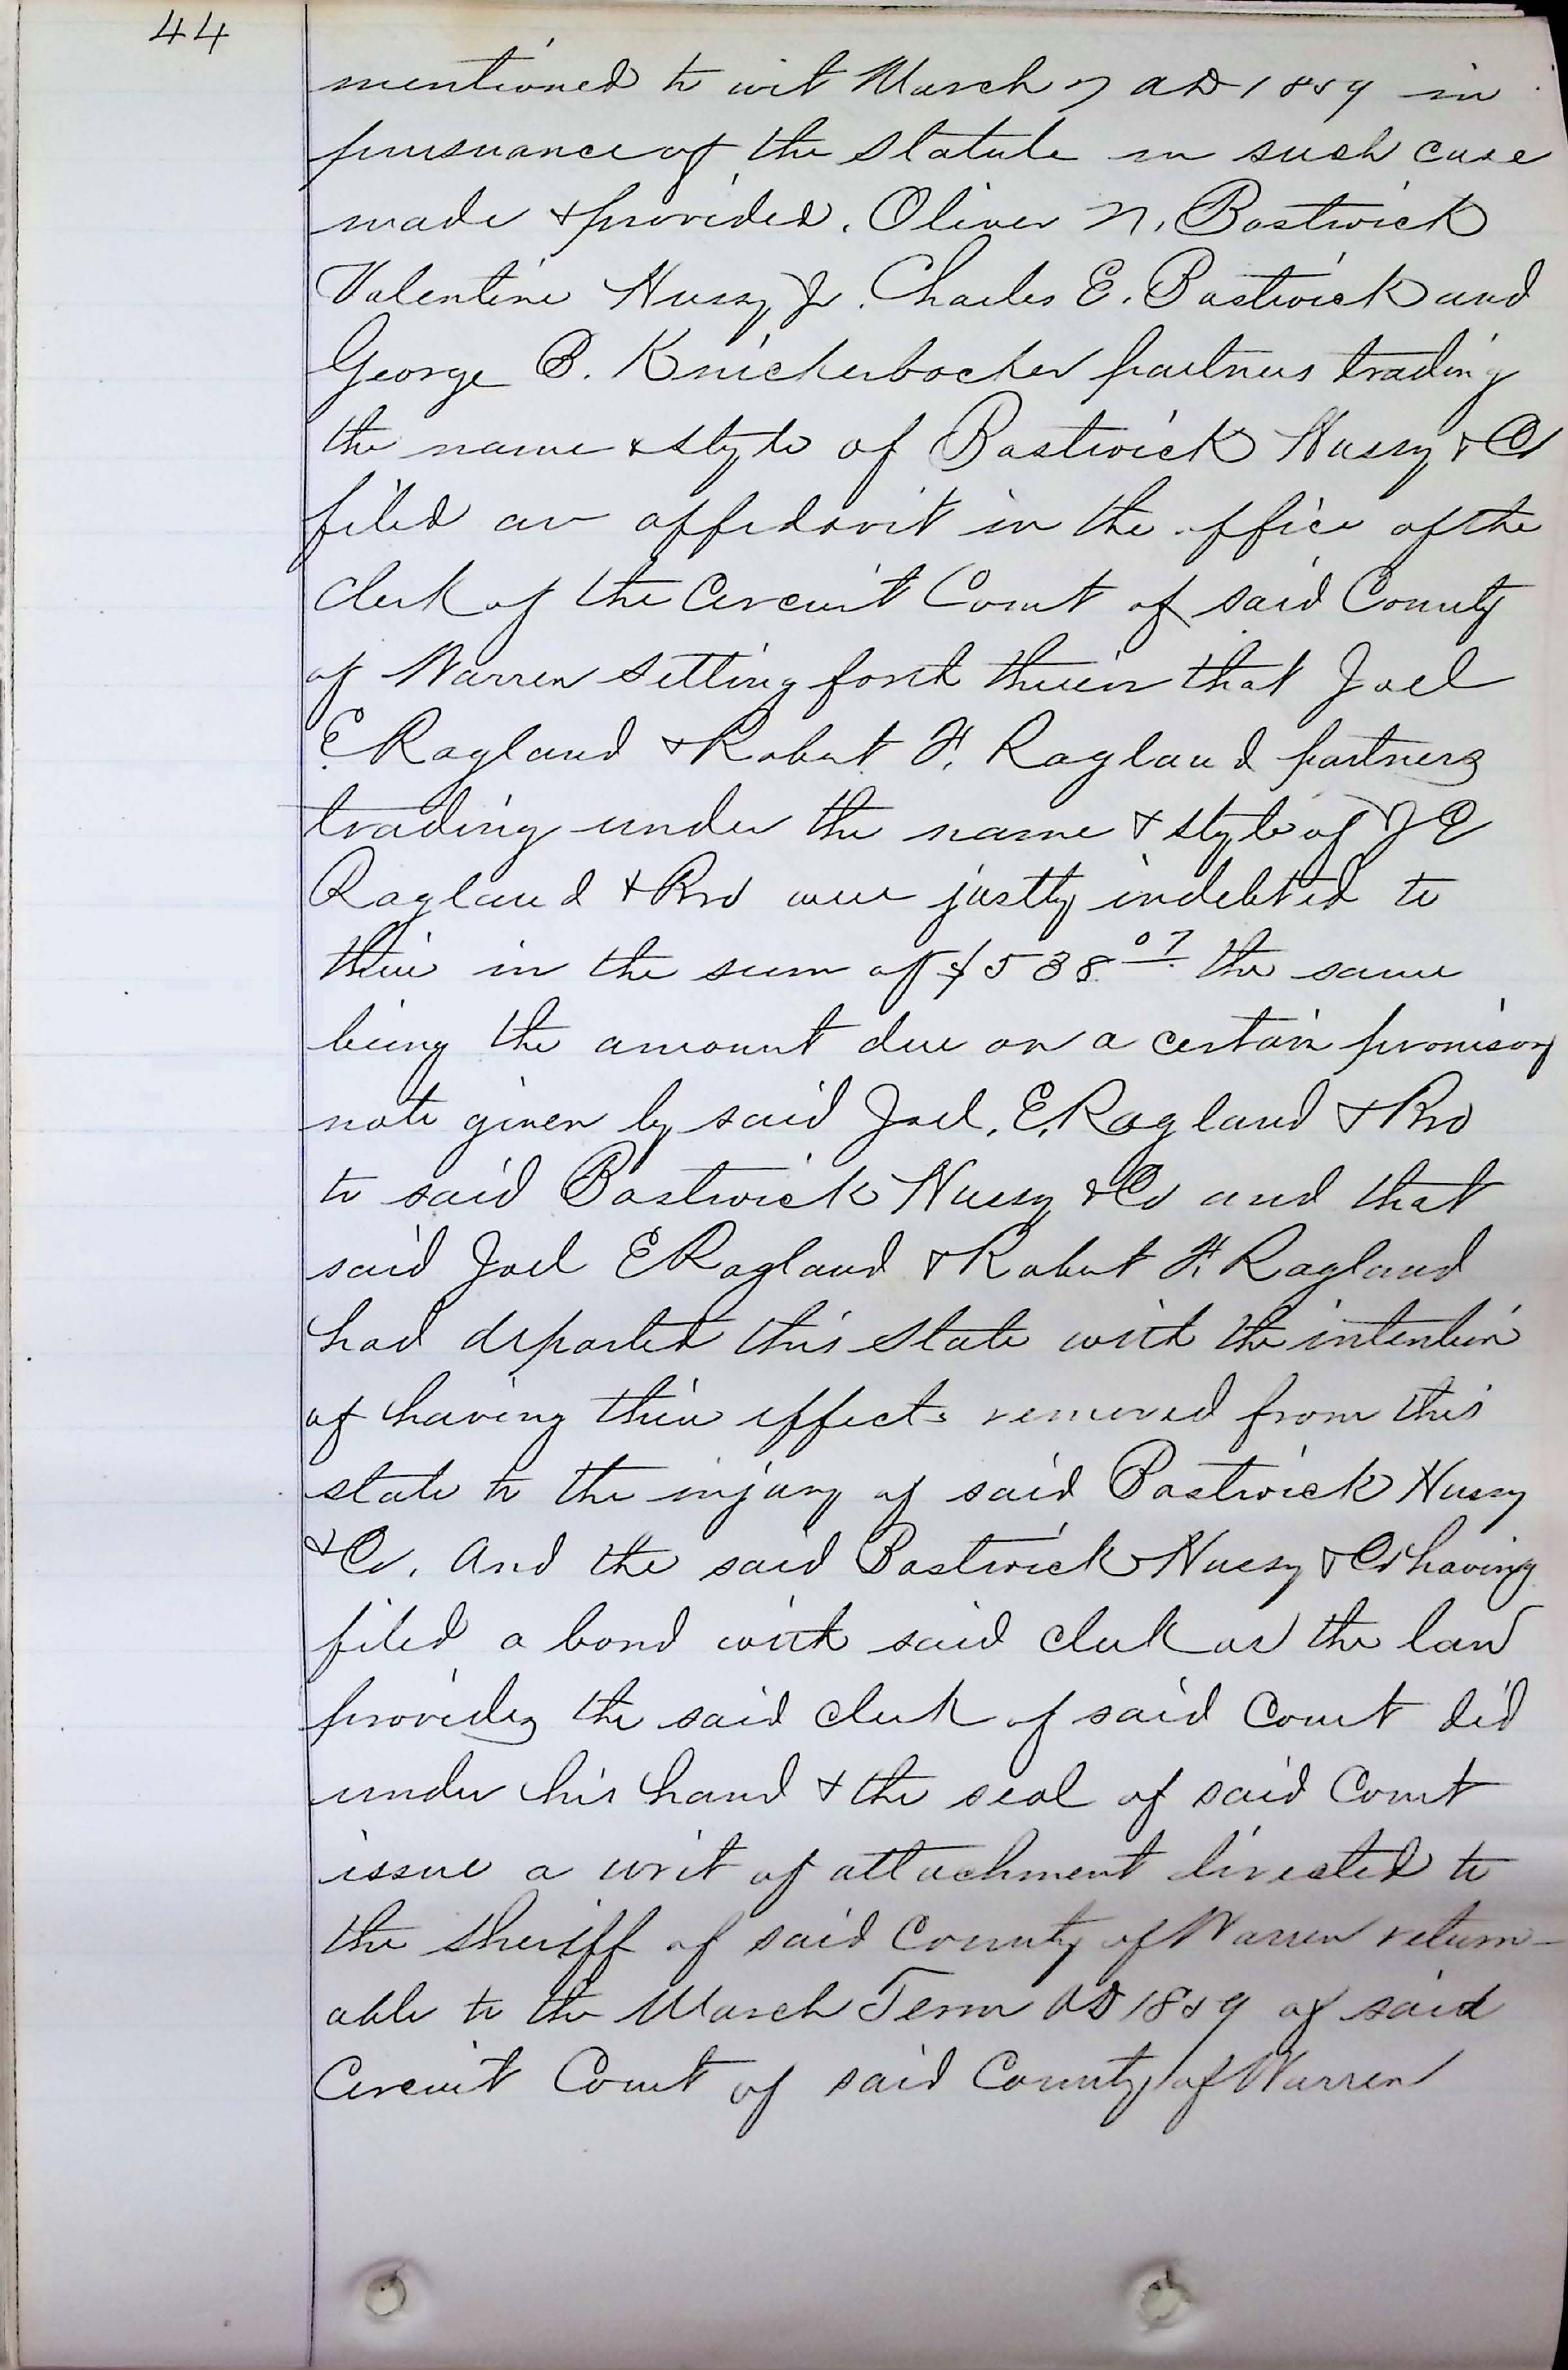 44
mentioned to wit March 7 AD 1859 in
pursuance of the Statute in such case
made & provided. Oliver N. Bostwick
Valentine Hussy Jr. Charles E. Bostwick and
George B. Knickerbocker partners trading
the name & style of Bostwick Hussy & Co
filed an affidavit in the office of the
Clerk of the Circuit Court of said County
of Warren setting forth therein that Joel
E Ragland & Robert F. Ragland partners
trading under the name & style of J E
Ragland & Bro were justly indebted to
them in the sum of $538.07 the same
being the amount due on a certain promisory
note given by said Joel. E. Ragland & Bro
to said Bostwick Hussy & Co and that
said Joel E Ragland & Robert F. Ragland
had departed this State with the intention
of having their effects removed from this
state to the injury of said Bostwick Hussy
& Co. And the said Bostwick Hussy & Co having
filed a bond with said clerk as the law
provides the said clerk of said Court did
under his hand & the seal of said Court
issue a writ of attachment directed to
the sheriff of said County of Warren return-
able to the March Term AD 1859 of said
Circuit Court of said County of Warren